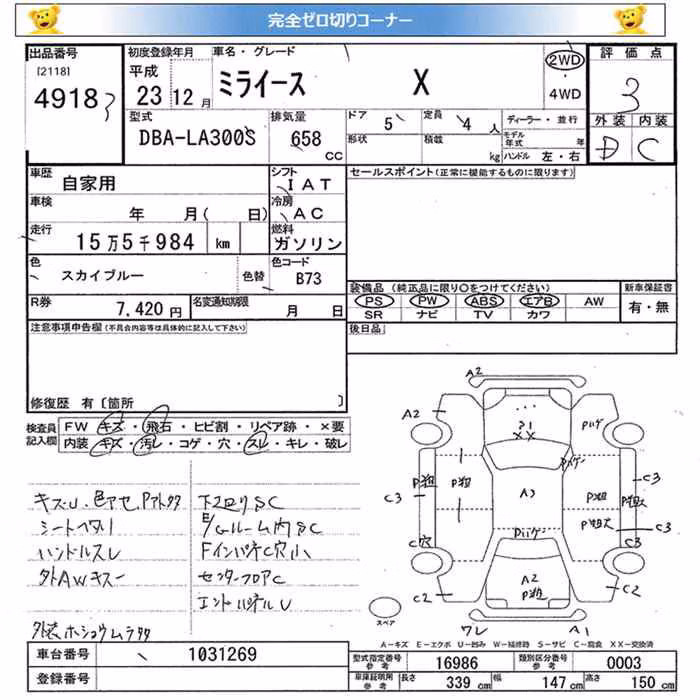 完全ゼロ切りコーナー
出品番号 初度登録年月 車名・グレード 評価点
[2118] 平成 ミライース X 2WD 3
4918 23 12月 ・ 4WD
型式 排気量 ドア 5 定員 4人 ディーラー・並行 外装 内装
DBA-LA300S 658 CC 形状 積載 kg モデル年式 年 D C
ハンドル 左・右
車歴 自家用 シフト IAT セールスポイント(正常に機能するものに限ります)
車検 年 月( 日) 冷房 AC
走行 15万5千984 km 燃料 ガソリン
色 スカイブルー 色替 色コード B73
装備品 (純正品に限り〇をつけてください) 新車保証書
R券 7,420円 名変通知期限 月 日 PS PW ABS エアB AW 有・無
SR ナビ TV カワ
注意事項申告欄(不具合内容等は具体的に記入して下さい) 後日品
修復歴 有〔箇所 〕
検査員記入欄 FW キズ・飛石・ヒビ割・リペア跡・×要
内装 キズ・汚レ・コゲ・穴・スレ・キレ・破レ
A2
A2 P1 XX Pハゲ
Pハゲ
C3 P粗 P粗 A3 P粗 P粗大 C3
P粗大 C3
C穴 Pハゲ C3
C2 A2 P粗 C2
ワレ A1
スペア
キズ・U・色アセ、Pアトタタ 下2回りSC
シートヘタリ E/Gルーム内SC
ハンドルスレ FインパネC穴小
外AWキズー センターフロアC
エンドパネルU
外装ホショウムラタタ
A-キズ E-エクボ U-凹み W-補修跡 S-サビ C-腐食 XX-交換済
車台番号 1031269 型式指定番号 参考 16986 類別区分番号 参考 0003
登録番号 車庫証明用 参考 長さ 339 cm 幅 147 cm 高さ 150 cm